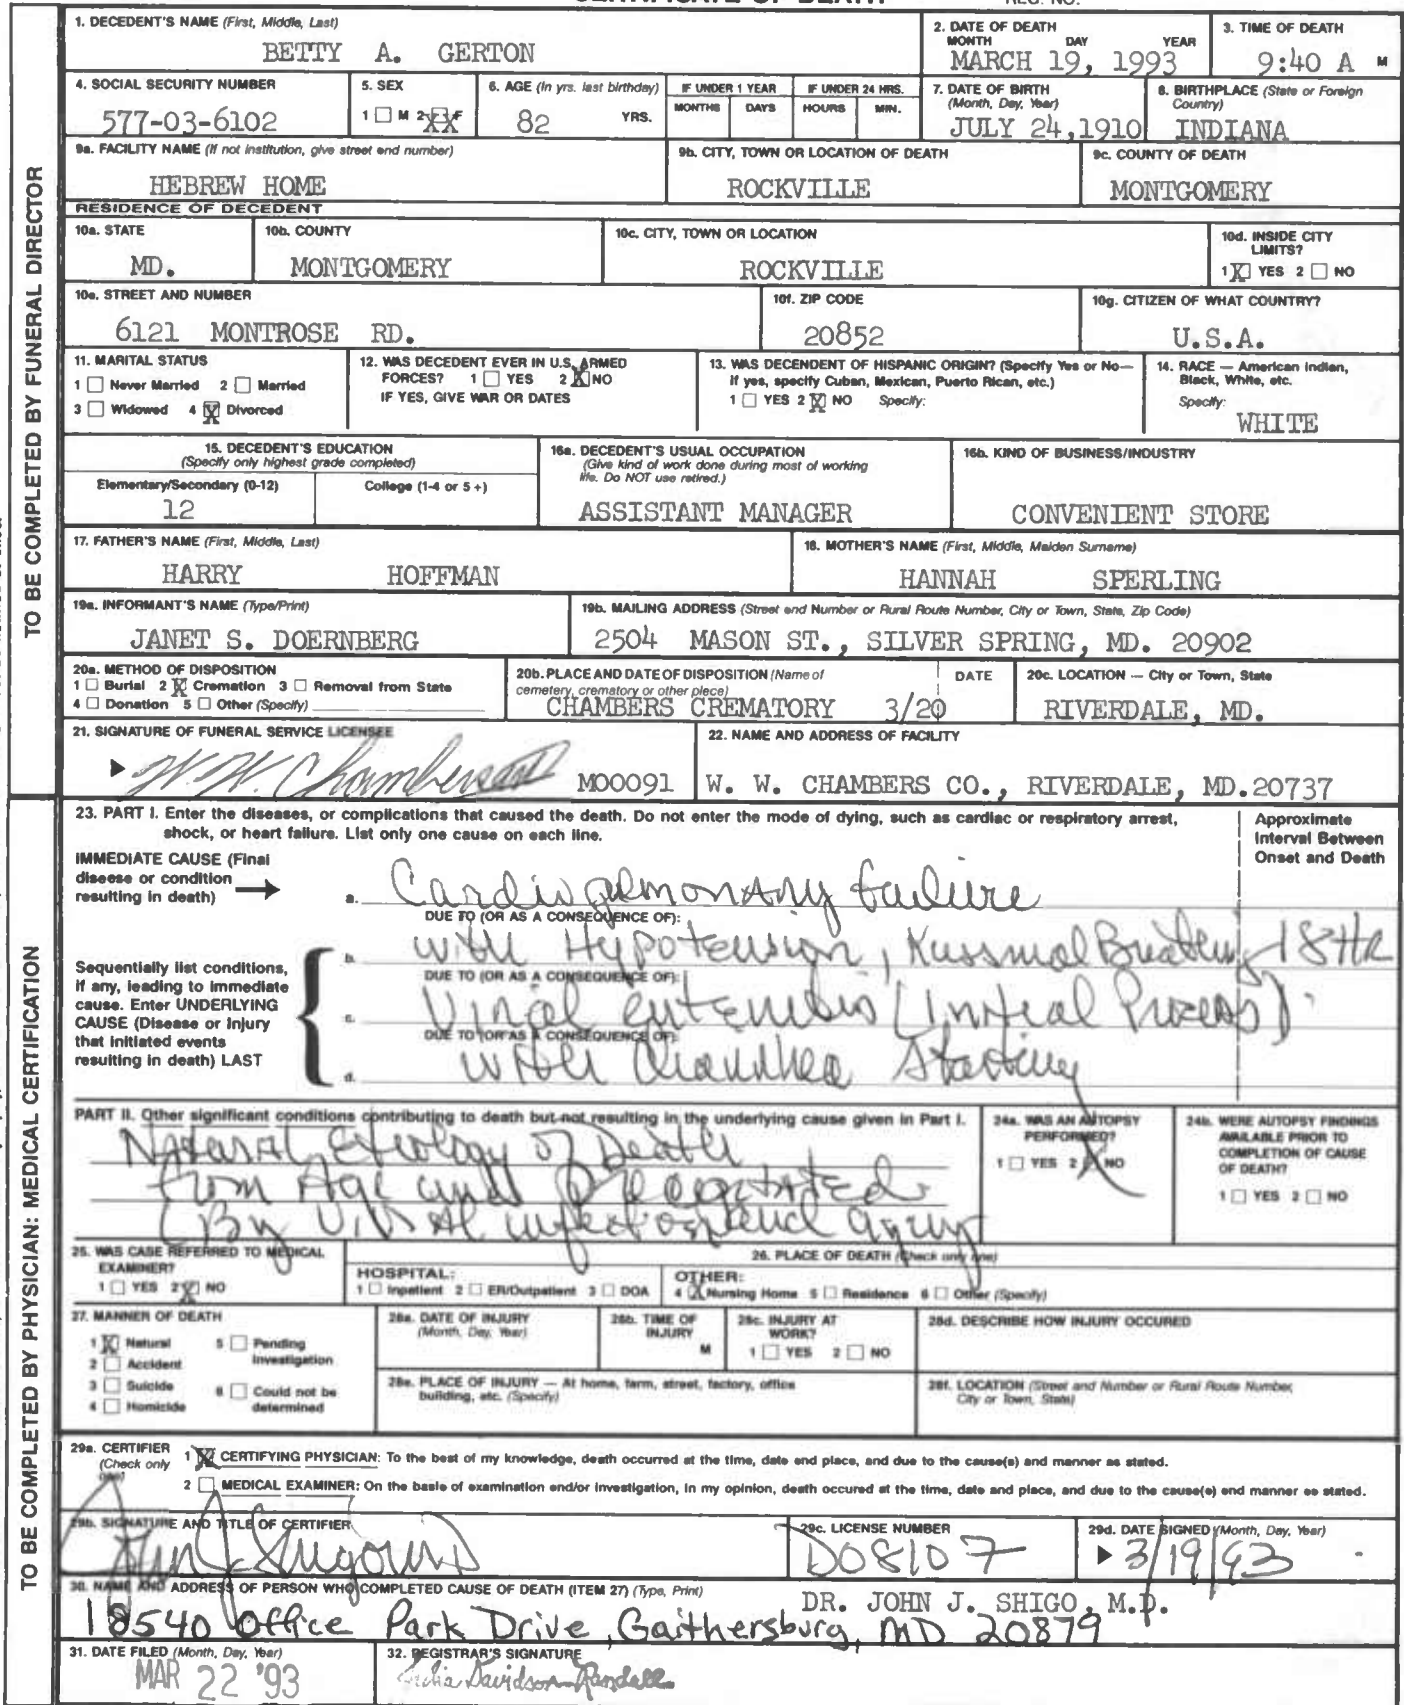 CERTIFICATE OF DEATH REG. NO.
1. DECEDENT'S NAME (First, Middle, Last)
BETTY A. GERTON
2. DATE OF DEATH
MONTH DAY YEAR
MARCH 19, 1993
3. TIME OF DEATH
9:40 A M
4. SOCIAL SECURITY NUMBER
577-03-6102
5. SEX
1 M 2 XX F
6. AGE (In yrs. last birthday)
82 YRS.
IF UNDER 1 YEAR
MONTHS DAYS
IF UNDER 24 HRS.
HOURS MIN.
7. DATE OF BIRTH
(Month, Day, Year)
JULY 24,1910
8. BIRTHPLACE (State or Foreign
Country)
INDIANA
9a. FACILITY NAME (If not institution, give street end number)
HEBREW HOME
9b. CITY, TOWN OR LOCATION OF DEATH
ROCKVILLE
9c. COUNTY OF DEATH
MONTGOMERY
RESIDENCE OF DECEDENT
10a. STATE
MD.
10b. COUNTY
MONTGOMERY
10c. CITY, TOWN OR LOCATION
ROCKVILLE
10d. INSIDE CITY
LIMITS?
1 X YES 2 NO
10e. STREET AND NUMBER
6121 MONTROSE RD.
10f. ZIP CODE
20852
10g. CITIZEN OF WHAT COUNTRY?
U.S.A.
11. MARITAL STATUS
1 Never Married 2 Married
3 Widowed 4 X Divorced
12. WAS DECEDENT EVER IN U.S. ARMED
FORCES? 1 YES 2 X NO
IF YES, GIVE WAR OR DATES
13. WAS DECENDENT OF HISPANIC ORIGIN? (Specify Yes or No—
If yes, specify Cuban, Mexican, Puerto Rican, etc.)
1 YES 2 X NO Specify:
14. RACE — American Indian,
Black, White, etc.
Specify:
WHITE
15. DECEDENT'S EDUCATION
(Specify only highest grade completed)
Elementary/Secondary (0-12) College (1-4 or 5+)
12
16a. DECEDENT'S USUAL OCCUPATION
(Give kind of work done during most of working
life. Do NOT use retired.)
ASSISTANT MANAGER
16b. KIND OF BUSINESS/INDUSTRY
CONVENIENT STORE
17. FATHER'S NAME (First, Middle, Last)
HARRY HOFFMAN
18. MOTHER'S NAME (First, Middle, Maiden Surname)
HANNAH SPERLING
19a. INFORMANT'S NAME (Type/Print)
JANET S. DOERNBERG
19b. MAILING ADDRESS (Street end Number or Rural Route Number, City or Town, State, Zip Code)
2504 MASON ST., SILVER SPRING, MD. 20902
20a. METHOD OF DISPOSITION
1 Burial 2 X Cremation 3 Removal from State
4 Donation 5 Other (Specify)
20b. PLACE AND DATE OF DISPOSITION (Name of
cemetery, crematory or other place)
DATE
CHAMBERS CREMATORY 3/20
20c. LOCATION — City or Town, State
RIVERDALE, MD.
21. SIGNATURE OF FUNERAL SERVICE LICENSEE
W. W. Chambers M00091
22. NAME AND ADDRESS OF FACILITY
W. W. CHAMBERS CO., RIVERDALE, MD.20737
TO BE COMPLETED BY FUNERAL DIRECTOR
23. PART I. Enter the diseases, or complications that caused the death. Do not enter the mode of dying, such as cardiac or respiratory arrest,
shock, or heart failure. List only one cause on each line.
Approximate
Interval Between
Onset and Death
IMMEDIATE CAUSE (Final
disease or condition
resulting in death)
a. Cardiopulmonary failure
DUE TO (OR AS A CONSEQUENCE OF):
b. with Hypotension, Kussmal Breathing 18 HR
Sequentially list conditions,
if any, leading to immediate
cause. Enter UNDERLYING
CAUSE (Disease or injury
that initiated events
resulting in death) LAST
DUE TO (OR AS A CONSEQUENCE OF):
c. Viral (Initial Process)
DUE TO (OR AS A CONSEQUENCE OF):
d. with diarrhea starting
PART II. Other significant conditions contributing to death but not resulting in the underlying cause given in Part I.
Natural Etiology of Death
from Age and
By Viral agent
24a. WAS AN AUTOPSY
PERFORMED?
1 YES 2 X NO
24b. WERE AUTOPSY FINDINGS
AVAILABLE PRIOR TO
COMPLETION OF CAUSE
OF DEATH?
1 YES 2 NO
25. WAS CASE REFERRED TO MEDICAL
EXAMINER?
1 YES 2 X NO
26. PLACE OF DEATH (Check only one)
HOSPITAL:
1 Inpatient 2 ER/Outpatient 3 DOA
OTHER:
4 X Nursing Home 5 Residence 6 Other (Specify)
27. MANNER OF DEATH
1 X Natural 5 Pending
Investigation
2 Accident
3 Suicide 6 Could not be
4 Homicide determined
28a. DATE OF INJURY
(Month, Day, Year)
28b. TIME OF
INJURY
M
28c. INJURY AT
WORK?
1 YES 2 NO
28d. DESCRIBE HOW INJURY OCCURED
28e. PLACE OF INJURY — At home, farm, street, factory, office
building, etc. (Specify)
28f. LOCATION (Street and Number or Rural Route Number,
City or Town, State)
29a. CERTIFIER
(Check only
one)
1 X CERTIFYING PHYSICIAN: To the best of my knowledge, death occurred at the time, date end place, and due to the cause(s) and manner as stated.
2 MEDICAL EXAMINER: On the basis of examination end/or investigation, in my opinion, death occured at the time, date and place, and due to the cause(s) end manner as stated.
29b. SIGNATURE AND TITLE OF CERTIFIER
29c. LICENSE NUMBER
D08107
29d. DATE SIGNED (Month, Day, Year)
3/19/93
30. NAME AND ADDRESS OF PERSON WHO COMPLETED CAUSE OF DEATH (ITEM 27) (Type, Print)
DR. JOHN J. SHIGO, M.D.
18540 Office Park Drive, Gaithersburg, MD 20879
31. DATE FILED (Month, Day, Year)
MAR 22 '93
32. REGISTRAR'S SIGNATURE
Julia Davidson-Randall
TO BE COMPLETED BY PHYSICIAN: MEDICAL CERTIFICATION